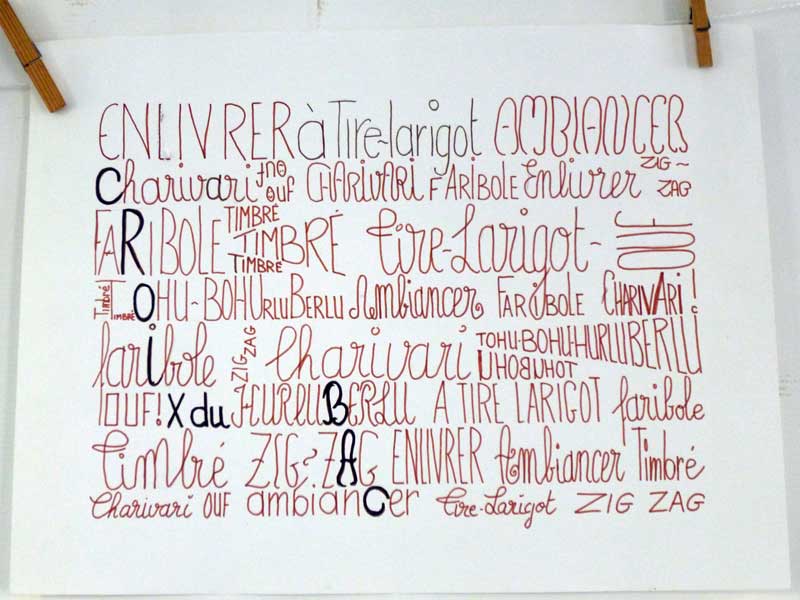 ENLIVRER à Tire-larigot AMBIANCER
Charivari ouf ouf CHARIVARI FARIBOLE Enlivrer ZIG-ZAG
FARIBOLE TIMBRÉ TIMBRÉ TIMBRÉ Tire-Larigot- OUF
Timbré TIMBRÉ TOHU-BOHU HURLUBERLU Ambiancer FARIBOLE CHARIVARI!
faribole ZIG ZAG Charivari TOHU-BOHU-HURLUBERLU UHOBUHOT
OUF! X du HURLUBERLU A TIRE LARIGOT faribole
Timbré ZIG? ZAG ENLIVRER Ambiancer Timbré
Charivari OUF ambianCer Tire-Larigot ZIG ZAG